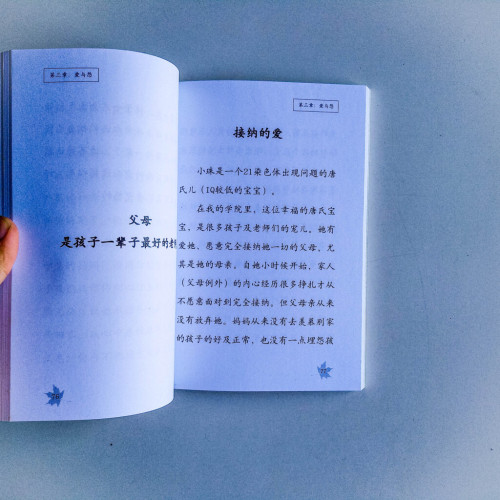 第二章：爱与怨
父母
是孩子一辈子最好的
第二章：爱与怨
接纳的爱
小珠是一个21染色体出现问题的唐
氏儿（IQ较低的宝宝）。
在我的学院里，这位幸福的唐氏宝
宝，是很多孩子及老师们的宠儿。她有
爱她、愿意完全接纳她一切的父母，尤
其是她的母亲。自她小时候开始，家人
（父母例外）的内心经历很多挣扎才从
不愿意面对到完全接纳。但父母亲从来
没有放弃她。妈妈从来没有去羡慕别家
的孩子的好及正常，也没有一点埋怨孩